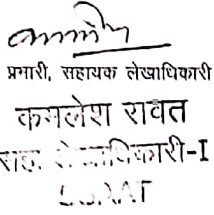 प्रभारी, सहायक लेखाधिकारी
कमलेश रावत
सहा. लेखाधिकारी-I